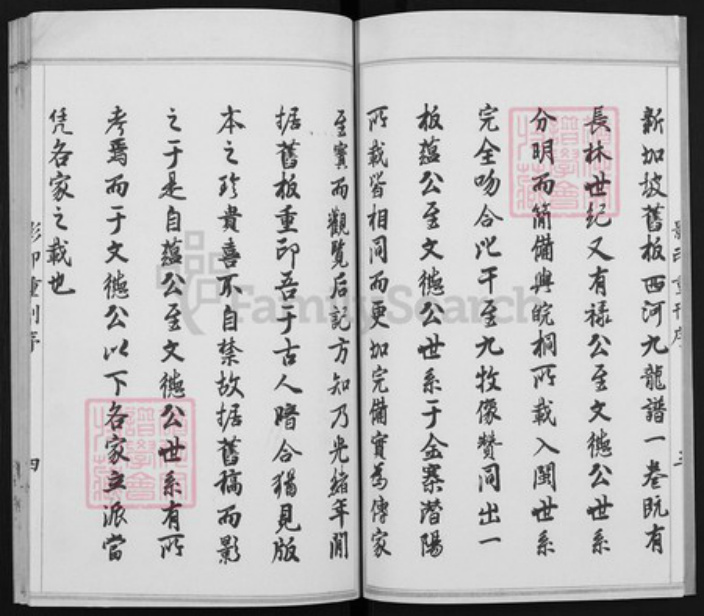 新加坡舊板西河九龍譜一卷既有
長林世紀又有祿公至文德公世系
分明而簡備與皖桐所載入閩世系
完全吻合比干至九牧像贊同出一
板蘊公至文德公世系于金寨潛陽
所載皆相同而更加完備實為傳家
至寶而觀覽后記方知乃光緒年間
据舊板重印吾于古人暗合猶見版
本之珍貴喜不自禁故据舊稿而影
之于是自蘊公至文德公世系有所
考焉而于文德公以下各家立派當
凭各家之載也
影印重刊序
四
FamilySearch